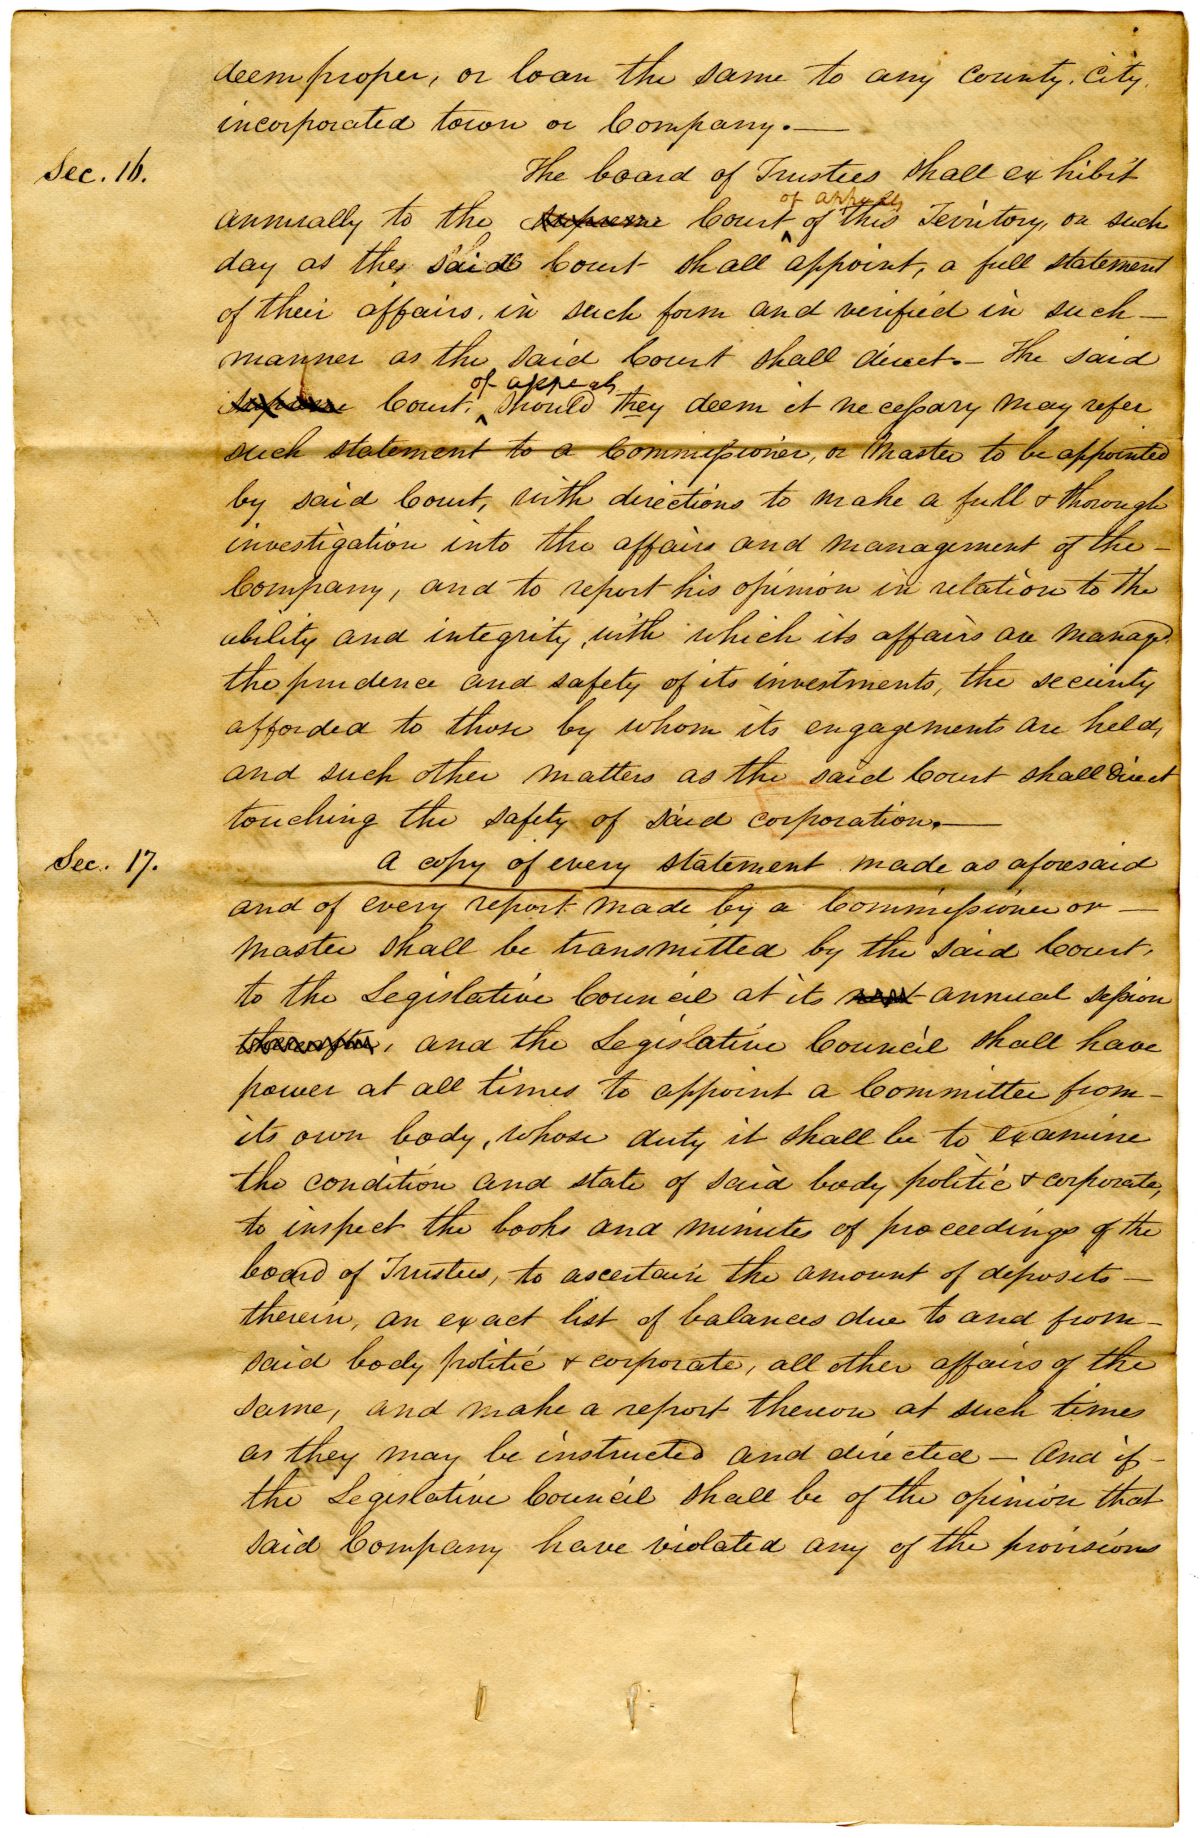 deem proper, or loan the same to any county, City,
incorporated town or Company.—
Sec. 16. The board of Trustees shall exhibit
of appeals
annually to the supreme Court of this Territory, on such
day as the said Court shall appoint, a full statement
of their affairs, in such form and verified in such—
manner as the said Court shall direct.— The said
of appeals
supreme Court, should they deem it necessary may refer
such statement to a Commissioner, or Master to be appointed
by said Court, with directions to make a full & thorough
investigation into the affairs and management of the—
Company, and to report his opinion in relation to the
ability and integrity, with which its affairs are managed
the prudence and safety of its investments, the security
afforded to those by whom its engagements are held,
and such other matters as the said Court shall direct
touching the safety of said corporation.—
Sec. 17. A copy of every statement made as aforesaid
and of every report made by a Commissioner or—
Master shall be transmitted by the said Court,
to the Legislative Council at its next annual session
thereafter, and the Legislative Council shall have
power at all times to appoint a Committee from—
its own body, whose duty it shall be to examine
the condition and state of said body politic & corporate,
to inspect the books and minutes of proceedings of the
board of Trustees, to ascertain the amount of deposits—
therein, an exact list of balances due to and from—
said body politic & corporate, all other affairs of the
same, and make a report thereon at such times
as they may be instructed and directed — And if—
the Legislative Council shall be of the opinion that
said Company have violated any of the provisions